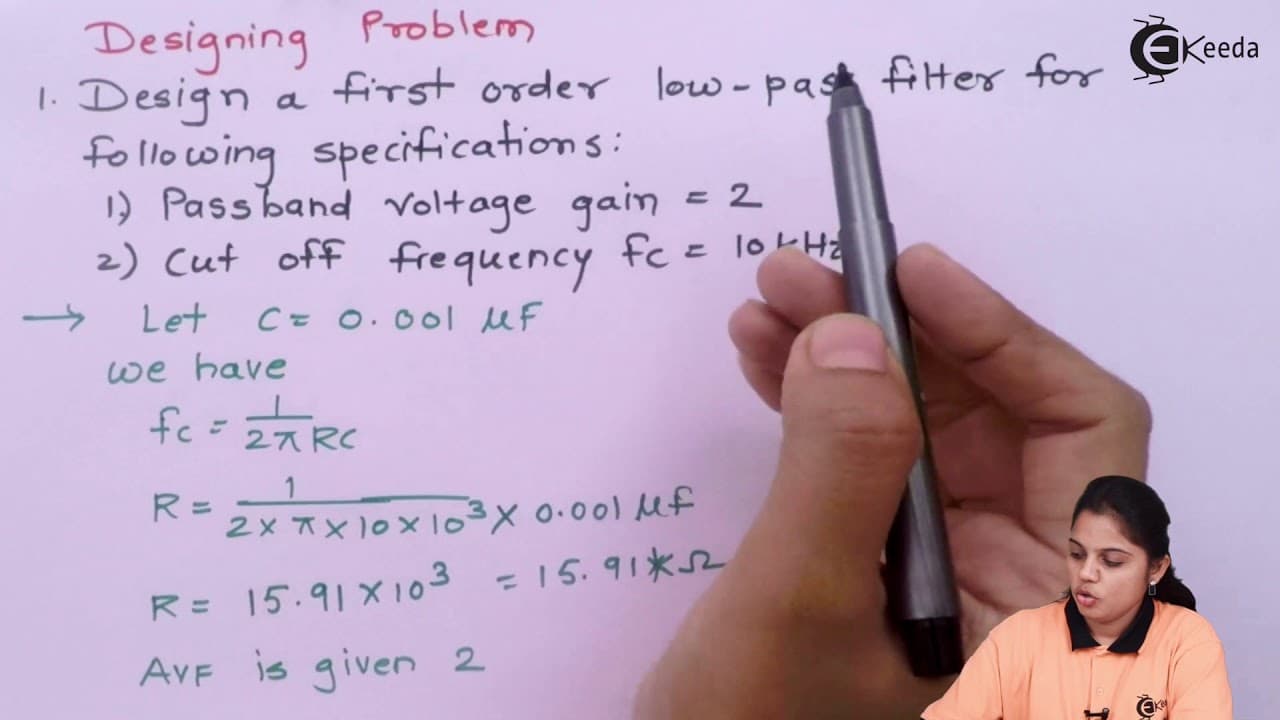 Designing Problem
EKeeda
1. Design a first order low-pass filter for
following specifications:
1) Passband voltage gain = 2
2) Cut off frequency fc = 10 kHz
→ Let C = 0.001 μF
we have
fc = 1/2πRC
R = 1/2×π×10×10³× 0.001 μf
R = 15.91×10³ = 15.91kΩ
AVF is given 2